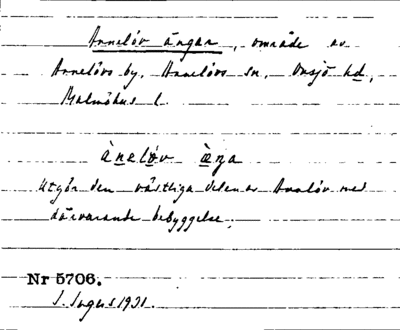 Annelöv ängar, område av
Annelövs by, Annelövs sn, Onsjö hd,
Malmöhus l.
ànelöv æ̀ŋa
Utgör den västliga delen av Annelöv med
därvarande bebyggelse.
Nr 5706.
1931.